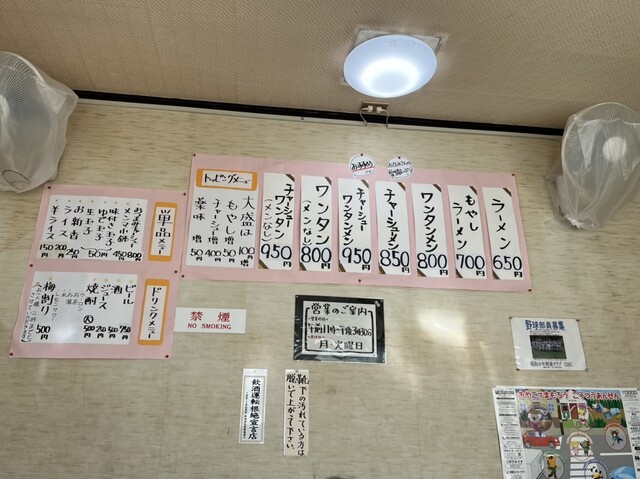 ラーメン 650円
もやしラーメン 700円
ワンタンメン 800円
チャーシューメン 850円
チャーシューワンタンメン 950円
ワンタン(メンなし) 800円
チャーシュー(メンなし) 950円
トッピングメニュー
大盛は 100円増
もやし増 50円
チャーシュー増 400円
薬味増 50円
おすすめ
単品メニュー
味付玉子
ゆで玉子
生玉子
お新香
ライス
半ライス 150円
ドリンクメニュー
ビール
酒
ジュース
焼酎
梅割り 500円
禁煙
NO SMOKING
営業のご案内
午前11時〜午後3時30分
月・火曜日
飲酒運転根絶宣言店
靴下の汚れている方は
脱いで上がって下さい。
野球部員募集